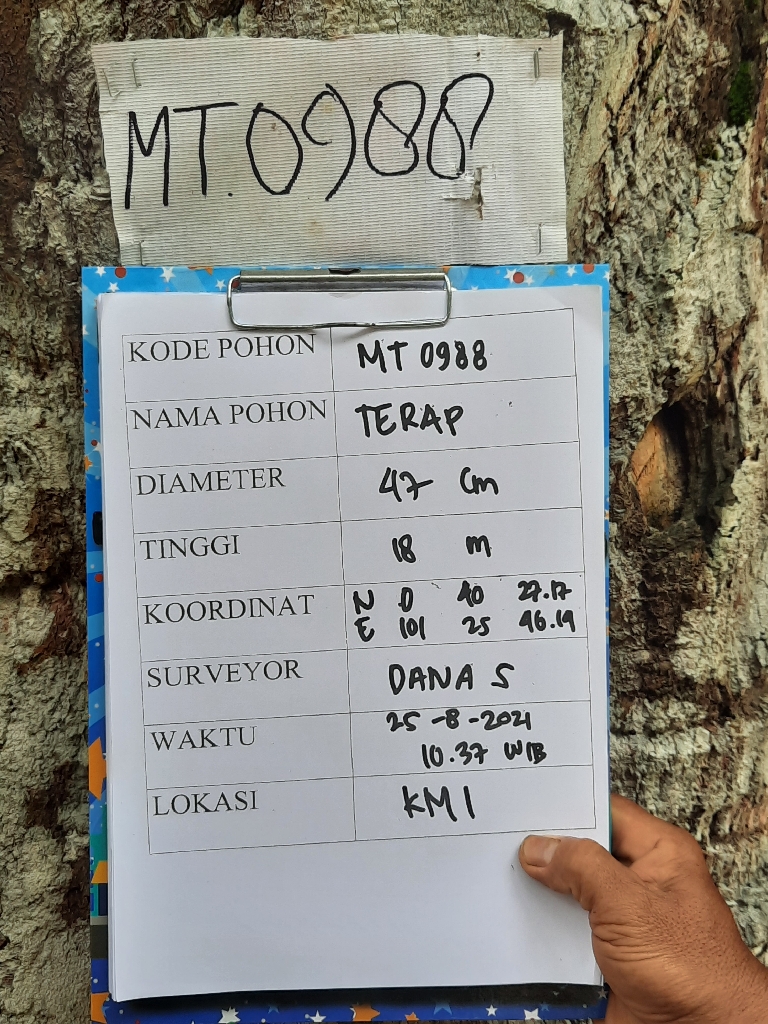 MT.0988
KODE POHON MT 0988
NAMA POHON TERAP
DIAMETER 47 Cm
TINGGI 18 m
KOORDINAT N 0 40 27.17
E 101 25 46.14
SURVEYOR DANA S
WAKTU 25-8-2021
10.37 WIB
LOKASI KM 1